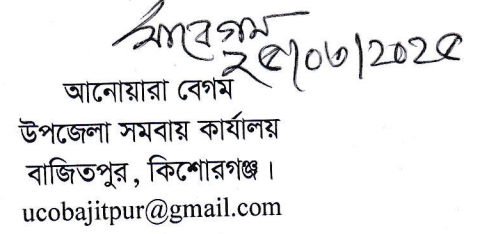 আবেগম
২৫/০৩/২০২৫
আনোয়ারা বেগম
উপজেলা সমবায় কার্যালয়
বাজিতপুর, কিশোরগঞ্জ।
ucobajitpur@gmail.com